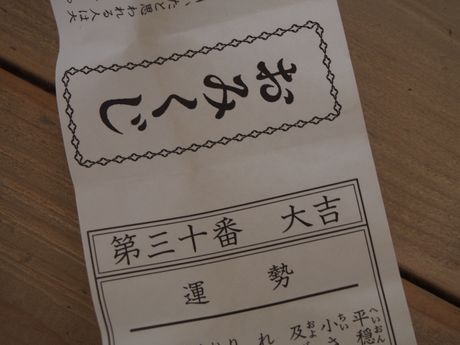 いたと思われる人は大
おみくじ
第三十番 大吉
運勢
平穏
へいおん
小さ
ちい
及
およ
れ
り